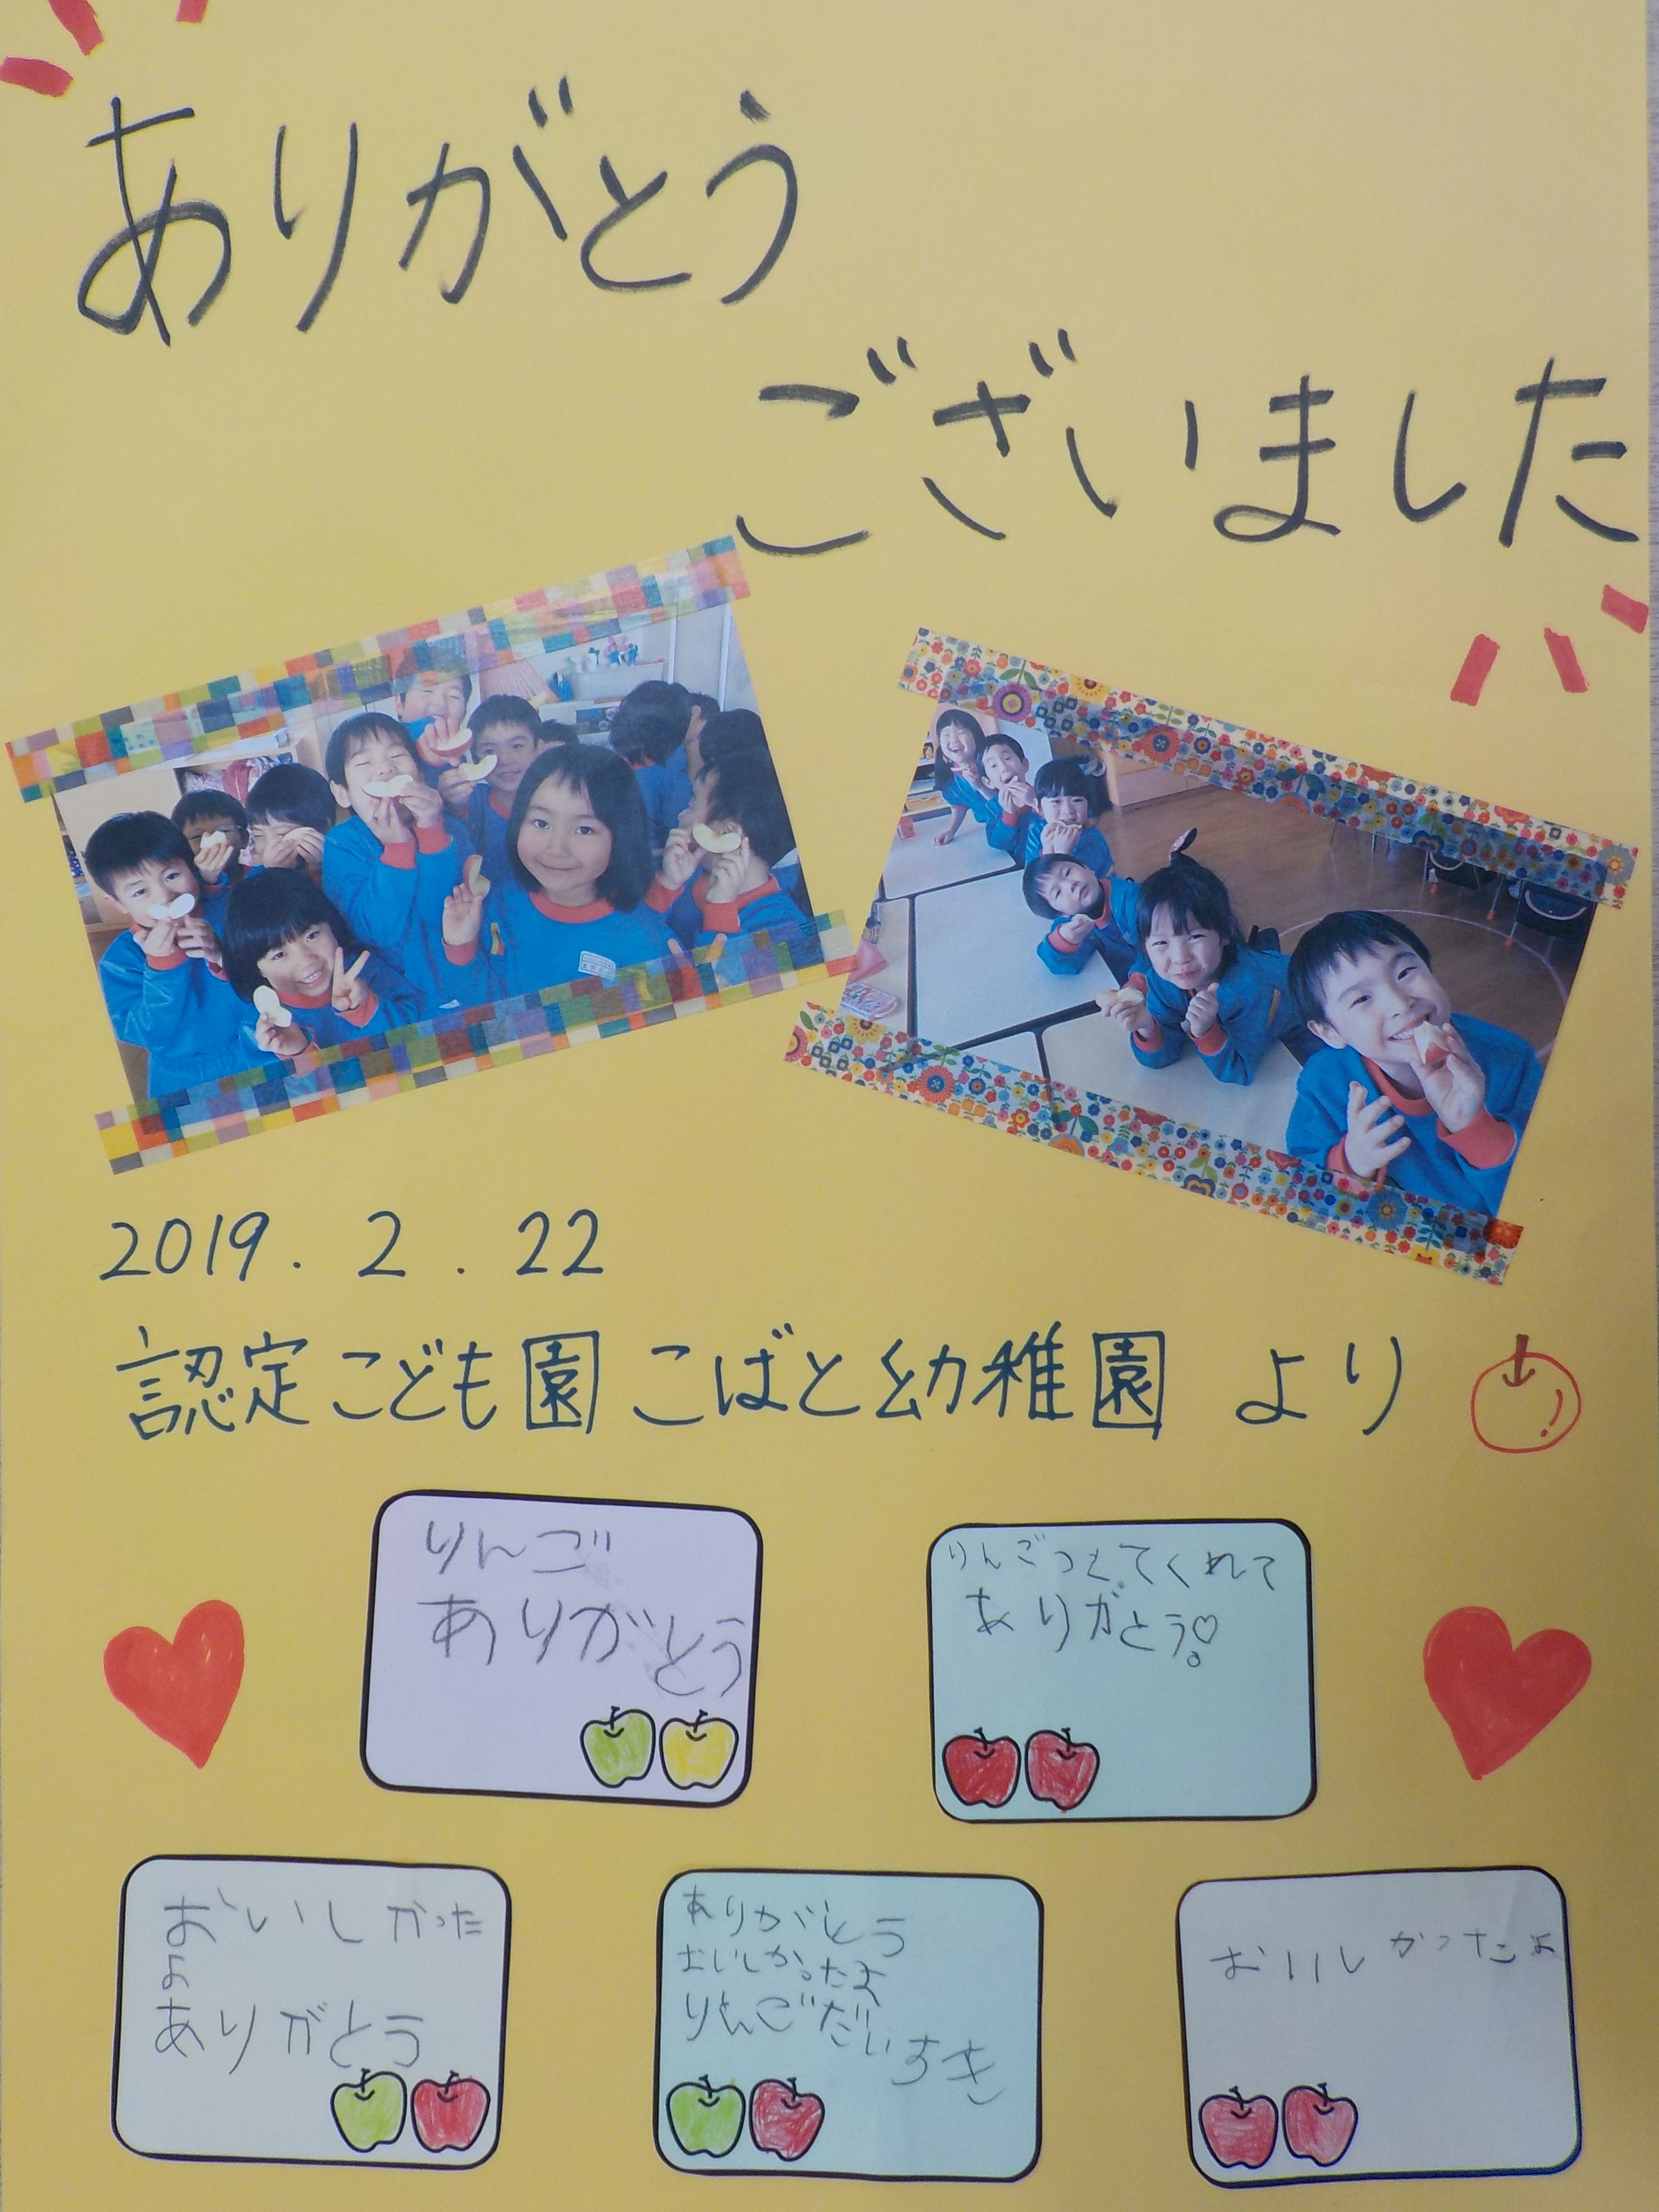 ありがとう
ございました
2019. 2. 22
認定こども園 こばと幼稚園 より
りんご
ありがとう
りんごつくてくれて
ありがとう♡
おいしかった
よ
ありがとう
ありがとう
おいしかったよ
りんごだいすき
おいしかったよ